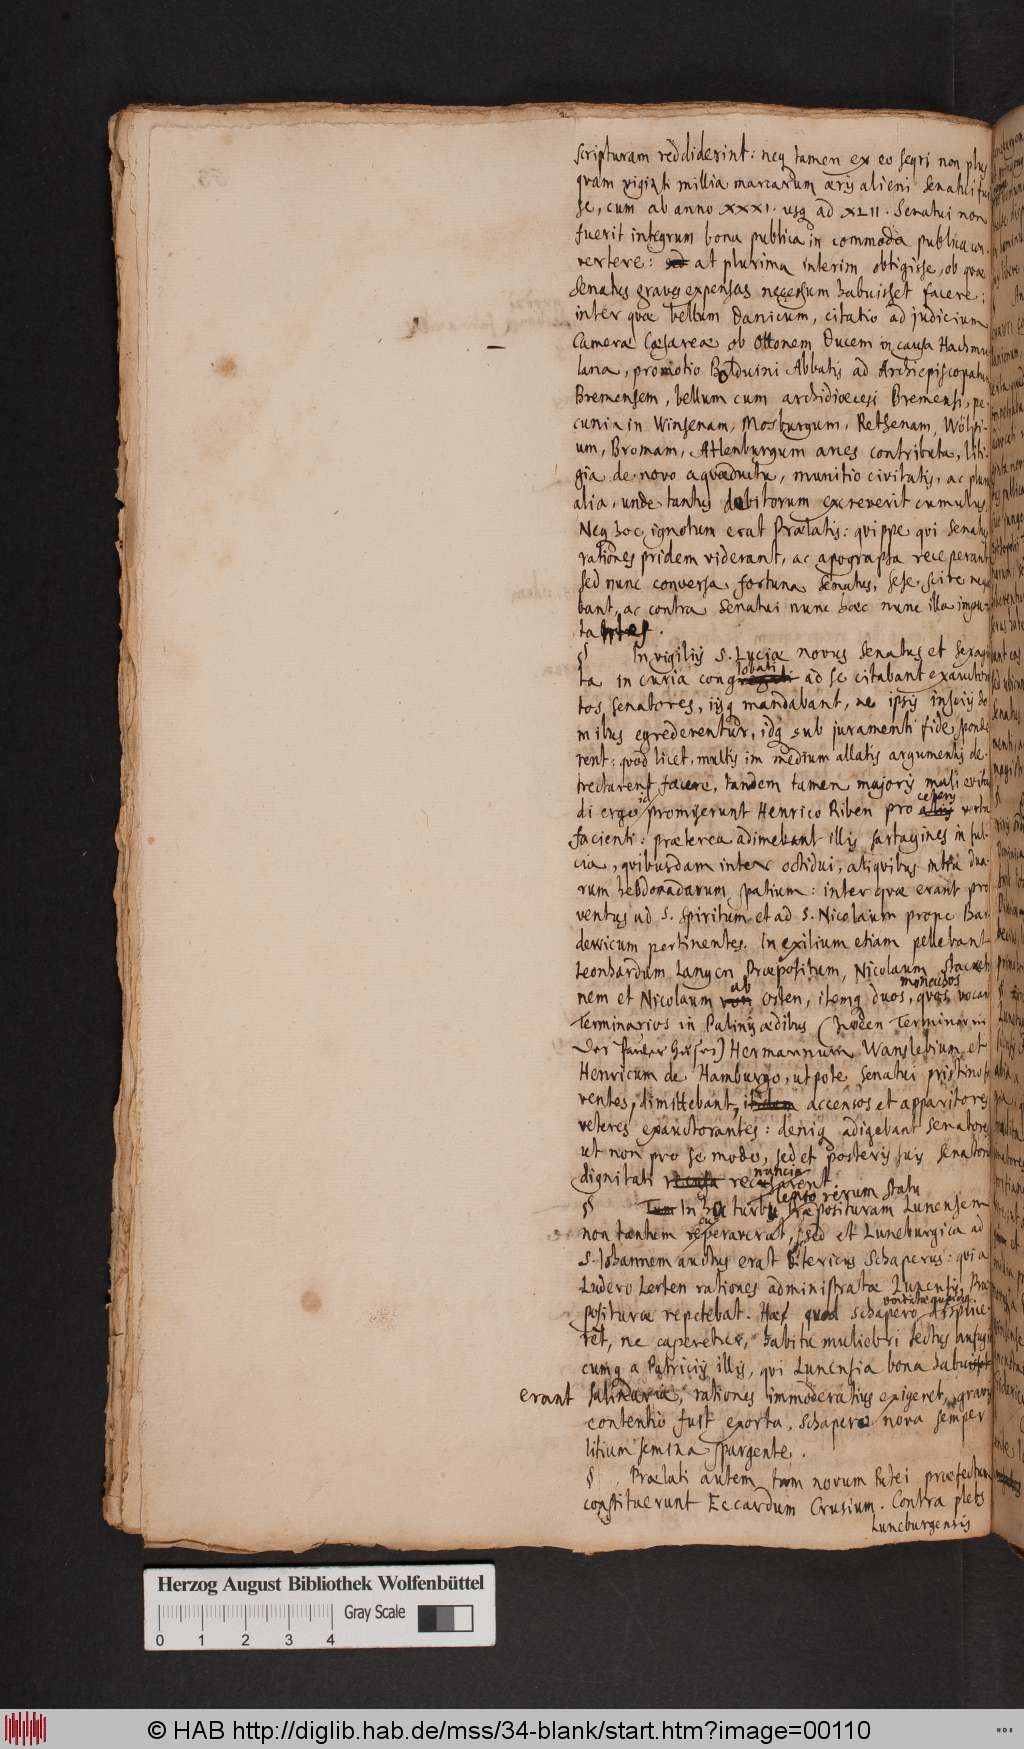 scripturam reddiderint: neq tamen ex eo seqri non plus
quam viginti millia marcarum æris alieni Senatui fuis
se, cum ab anno XXXI. usq ad XLII. Senatui non
fuerit integrum bona publica in commoda publica con-
vertere: sed at plurima interim obtigisse, ob quæ
Senatus graves expensas necessum habuisset facere:
inter quæ bellum Danicum, citatio ad judicium
Cameræ Cæsareæ ob Ottonem Ducem in causa Hachmu
lana, promotio Balduini Abbatis ad Archiepiscopatum
Bremensem, bellum cum archidiœcesi Bremensi, pe-
cunia in Winsenam, Mosburgum, Rethenam, Wölpi-
um, Bromam, Attenburgum arces contributa, liti-
gia de novo aquæductu, munitio civitatis, ac plura
alia, unde tantus debitorum excreverit cumulus.
Neq hoc ignotum erat Prælatis: quippe qui Senatus
rationes pridem viderant, ac apographa receperant
sed nunc conversa fortuna Senatus, sese scire nega
bant, ac contra Senatui nunc hæc nunc illa impu-
tantes.
§ In vigiliis S. Luciæ novus Senatus et sexagin
lobati
ta in curia congregati ad se citabant exauctora
tos Senatores, iisq mandabant, ne ipsis insciis do
mibus egrederentur, idq sub juramenti fide sponde
rent: quod licet multis im medium allatis argumentis de-
trectarent facere, tandem tamen majoris mali evitan
id ceteris
di ergo promiserunt Henrico Riben pro aliis verba
facienti: præterea adimebant illis sartagines in sul-
cia, quibusdam inter octidui, aliquibus intra dua-
rum hebdomadarum spatium: inter quæ erant pro
ventus ad S. Spiritum et ad S. Nicolaum prope Bar
dewicum pertinentes. In exilium etiam pellebant
Leonhardum Langen Præpositum, Nicolaum Stocket
ab monachos
nem et Nicolaum von Osten, itemq duos, quos vocan
Terminarios in Palinis ædibus
Hermannum Wanslebium et
Henricum de Hamburgo, utpote Senatui pristino fa
ventes, dimittebant, itidem accensos et apparitores
veteres exauctorantes: deniq adigebant Senatores
ut non pro se modo, sed et posteris suis Senatoriæ
nuncia
dignitati recusa recusarent.
rerum statu
§ Tum In turbu Præposituram Lunensem
cu
non tantum reperaverat, sed et Luneburgica ad
S. Johannem auctus erat Ditericus Schaperus: qui a
Ludero Lerten rationes administratæ Lunensis Præ
posituræ repetebat. Hæc quod Schapero displice-
ret, ne caperetur, habitu muliebri tectus aufugit
cumq a Patriciis illis, qui Lunensia bona habuisset
erant salinaria, rationes immoderatius exigeret, gravis
contentio fuit exorta, Schapero nova semper
litium semina spargente.
§ Prælati autem tum novum Putei præfectum
constituerunt Eccardum Crusium. Contra plebs
Luneburgensis
Herzog August Bibliothek Wolfenbüttel
Gray Scale
0 1 2 3 4
© HAB http://diglib.hab.de/mss/34-blank/start.htm?image=00110